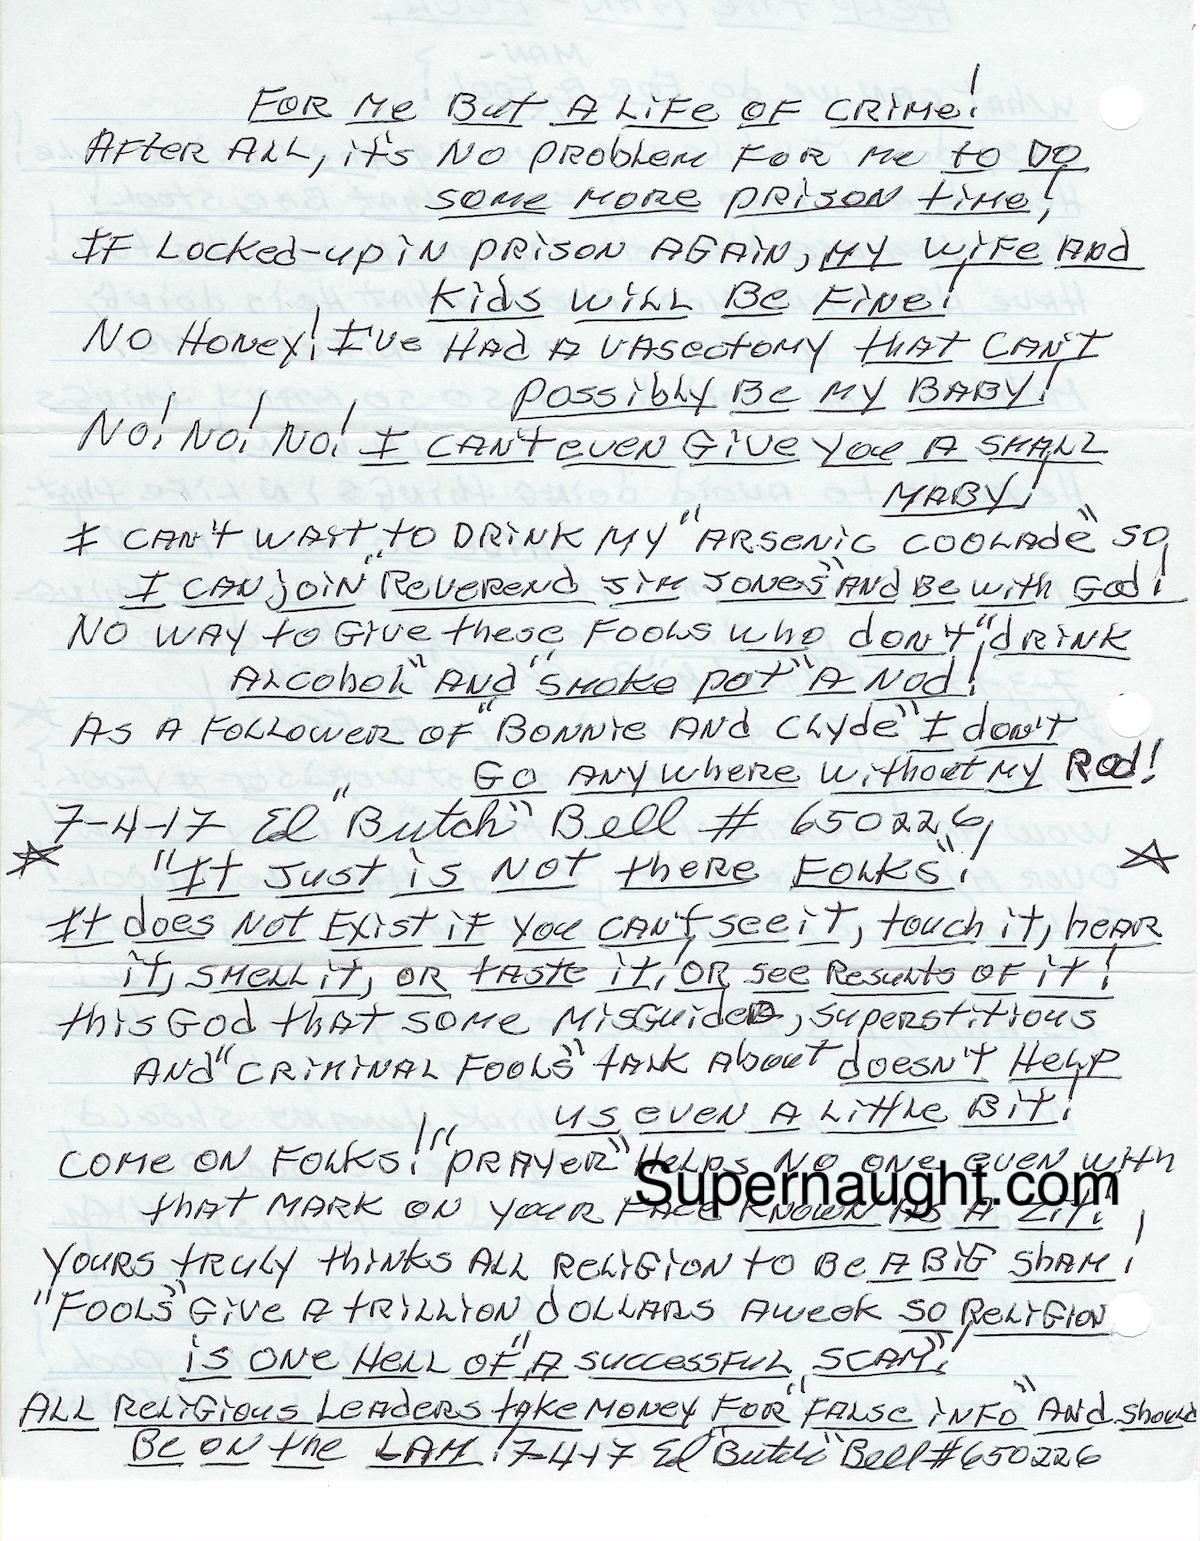 FOR Me But A LiFe OF CRiMe!
AFter ALL, it's NO PRObleM FOR Me to DO
SOMe MORe PRisON tiMe!
IF Locked-up iN PRisON AGAiN, MY WiFe And
Kids WiLL Be FiNe!
NO HONey! I've HAd A VAsectoMy tHAt CAN't
Possibly Be MY BABY!
NO! NO! NO! I CAN't eveN GiVe You A SMALL
MABY!
I CAN't WAit to DRiNK MY "ARseNic COOLAde" SO
I CAN joiN "ReVeReNd JiM JONes" ANd Be with God!
NO WAY to GiVe these FOOLS who doN't "dRiNK
ALcohoL" ANd "SMOKe Pot" A Nod!
AS A FOLLOWeR OF "BONNie ANd CLyde" I doN't
GO ANYwheRe Without MY Rod!
7-4-17 Ed "Butch" Bell # 650226
"It Just is NOt theRe FOLKs"!
It does Not Exist iF You CAN't see it, touch it, heAR
it, SMeLL it, OR tAste it, OR see Results OF it!
this God thAt SOMe MisGuided, supeRstitious
ANd "CRiMiNAL FOOLs" tALK About doesN't HeLP
us eveN A LittLe Bit!
COMe ON FOLKS! "PRAYeR" HeLps NO ONe eveN with
thAt MARK ON YOUR FAce KNOWN As A Zit!
Supernaught.com
YOURS tRuLY thiNKs ALL ReLiGiON to Be A BiG ShAM!
"FOOLS" GiVe A tRiLLiON doLLARS A week so ReLiGiON
is ONe HeLL OF "A successFuL SCAM"!
ALL ReLiGious LeAdeRs tAKe MONey FOR "FALse iNFO" ANd should
Be ON the LAM! 7-4-17 Ed "Butch" Bell #650226